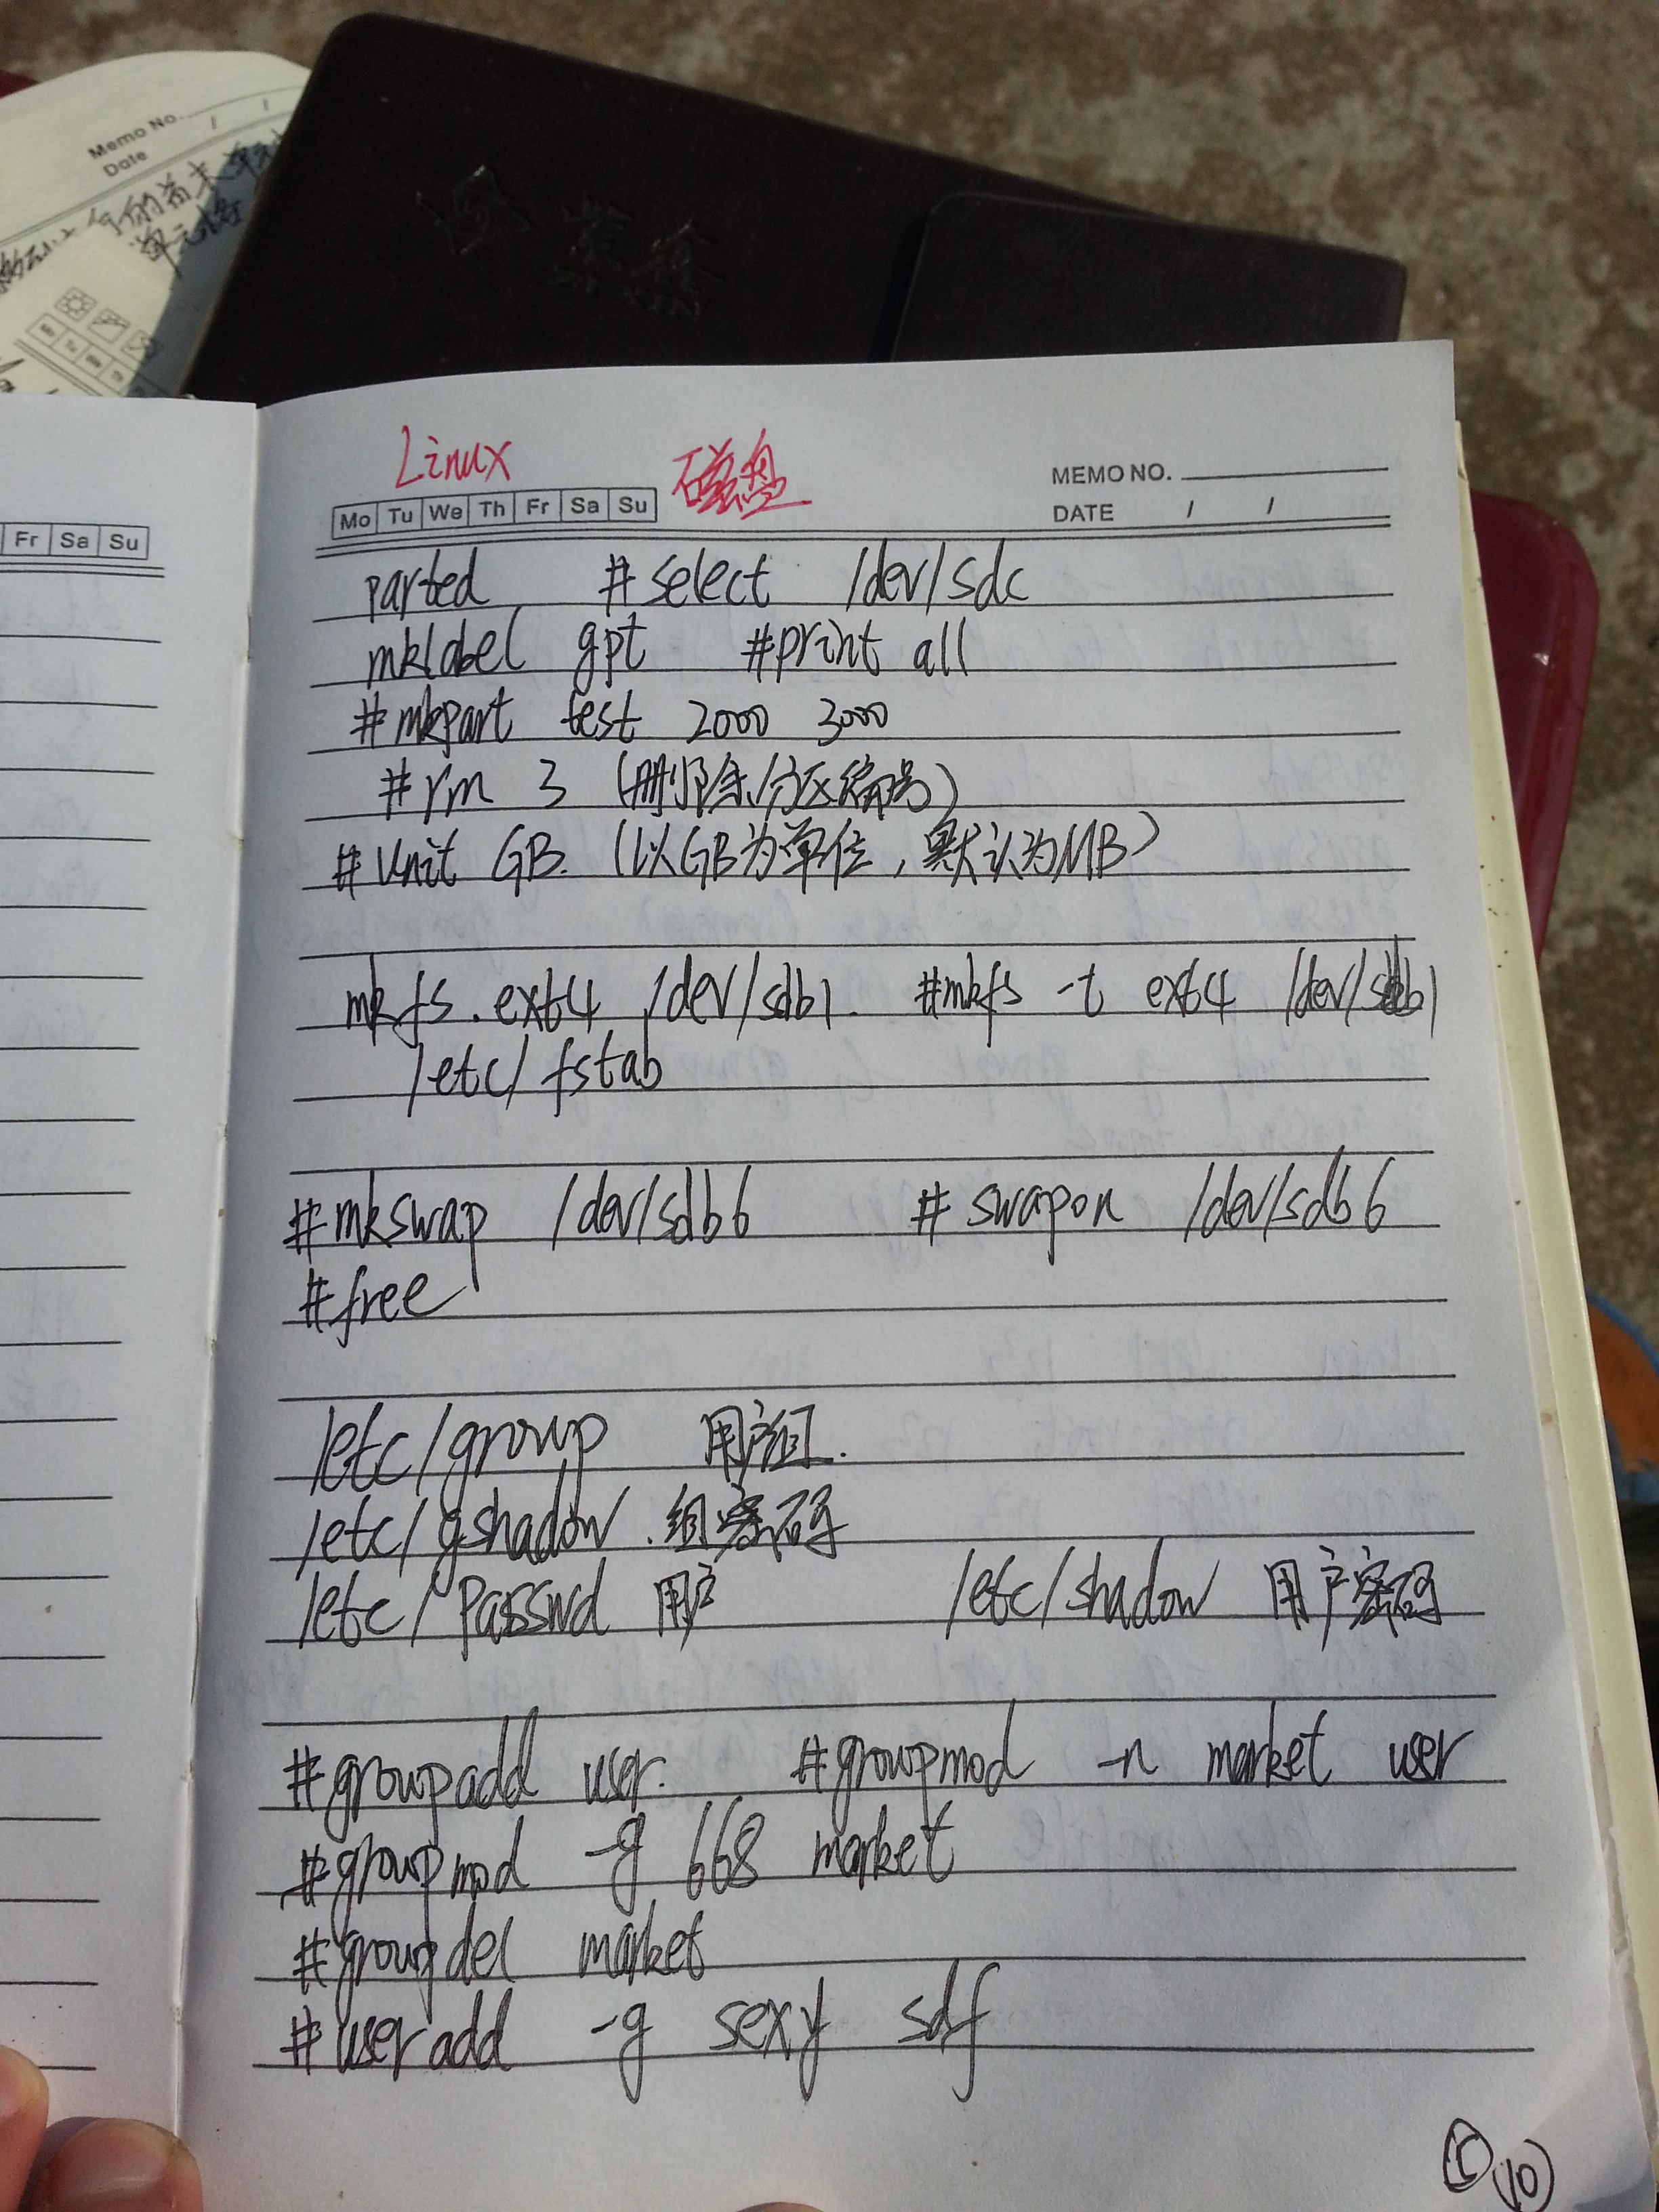 Memo No.
Date
单元格
Linux 磁盘
Mo Tu We Th Fr Sa Su
MEMO NO.
DATE / /
Fr Sa Su
parted #select /dev/sdc
mklabel gpt #print all
#mkpart test 2000 3000
#rm 3 (删除分区编号)
#unit GB. (以GB为单位,默认为MB)
mkfs.ext4 /dev/sdb1. #mkfs -t ext4 /dev/sdb1
/etc/fstab
#mkswap /dev/sdb6 #swapon /dev/sdb6
#free
/etc/group 用户组.
/etc/gshadow.组密码
/etc/passwd 用户 /etc/shadow 用户密码
#groupadd user. #groupmod -n market user
#groupmod -g 668 market
#groupdel market
#useradd -g sexy sdf
10